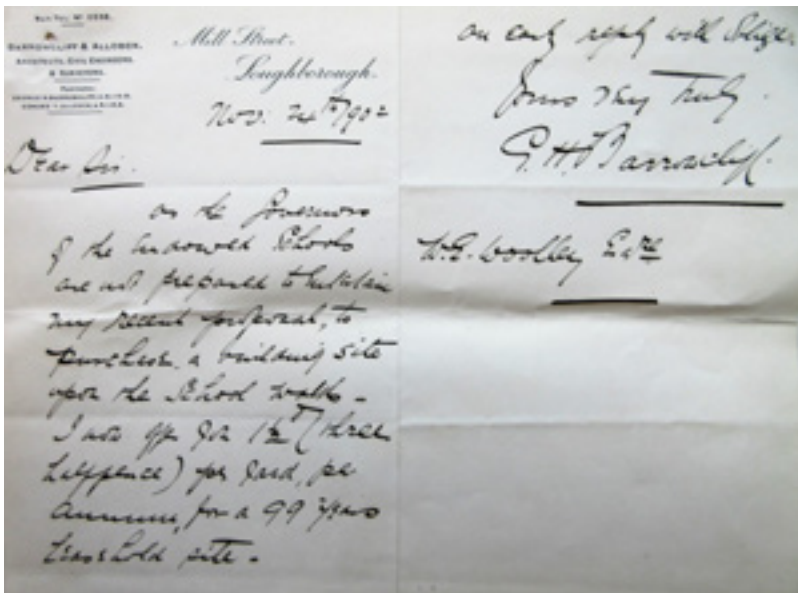 BARROWCLIFF & ALLCOCK.
ARCHITECTS, CIVIL ENGINEERS
& SURVEYORS.
Mill Street.
Loughborough.
Nov: 24th 1902
Dear Sir.
As the Governors
of the Endowed Schools
are not prepared to entertain
my recent proposal, to
purchase a building site
upon the School walks -
I now offer you 1½d (three
halfpence) per yard, per
annum, for a 99 years
leasehold site -
an early reply will oblige
Yours very Truly
G. H. Barrowcliff.
W. E. Woolley Esqre